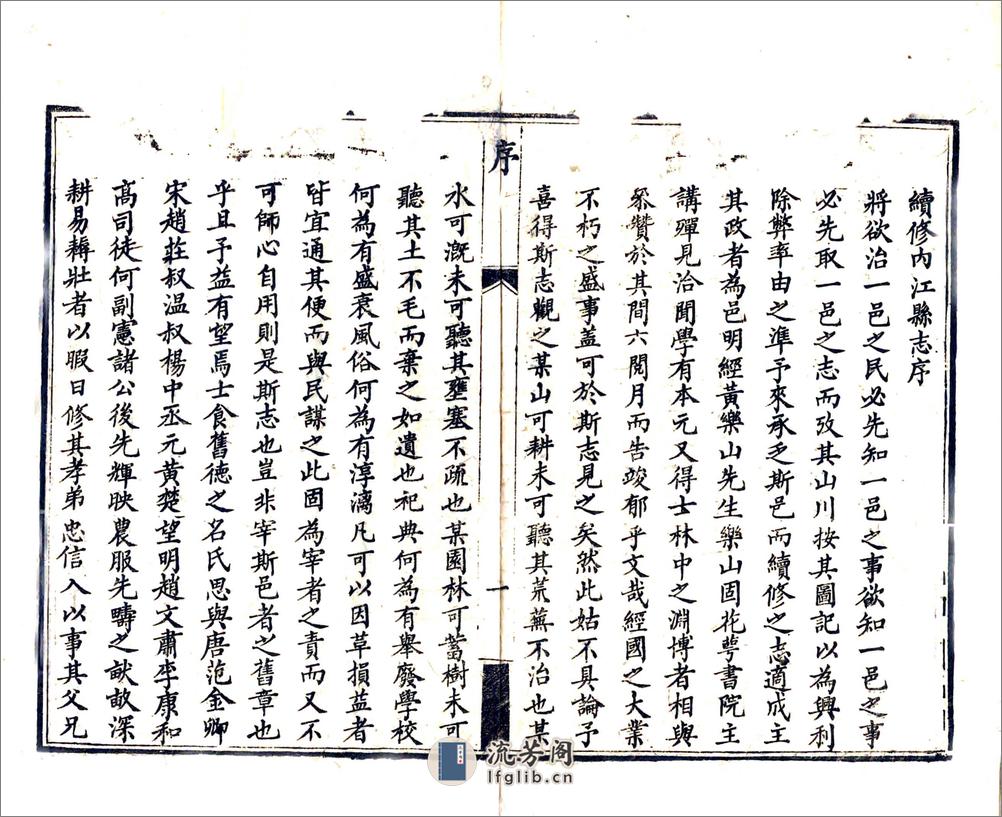 續修內江縣志序
將欲治一邑之民必先知一邑之事欲知一邑之事
必先取一邑之志而攷其山川按其圖記以為興利
除弊率由之準予來承乏斯邑而續修之志適成主
其政者為邑明經黃樂山先生樂山固花萼書院主
講殫見洽聞學有本元又得士林中之淵博者相與
叅贊於其間六閱月而告竣郁乎文哉經國之大業
不朽之盛事盖可於斯志見之矣然此姑不具論予
喜得斯志觀之某山可耕未可聽其荒蕪不治也某
序
一
水可溉未可聽其壅塞不疏也某園林可蓄樹未可
聽其土不毛而棄之如遺也祀典何為有舉廢學校
何為有盛衰風俗何為有淳漓凡可以因革損益者
皆宜通其便而與民謀之此固為宰者之責而又不
可師心自用則是斯志也豈非宰斯邑者之舊章也
乎且予益有望焉士食舊德之名氏思與唐范金卿
宋趙莊叔温叔楊中丞元黃楚望明趙文肅李康和
高司徒何副憲諸公後先輝映農服先疇之畎畝深
耕易耨壯者以暇日修其孝弟忠信入以事其父兄
流芳阁
lfglib.cn